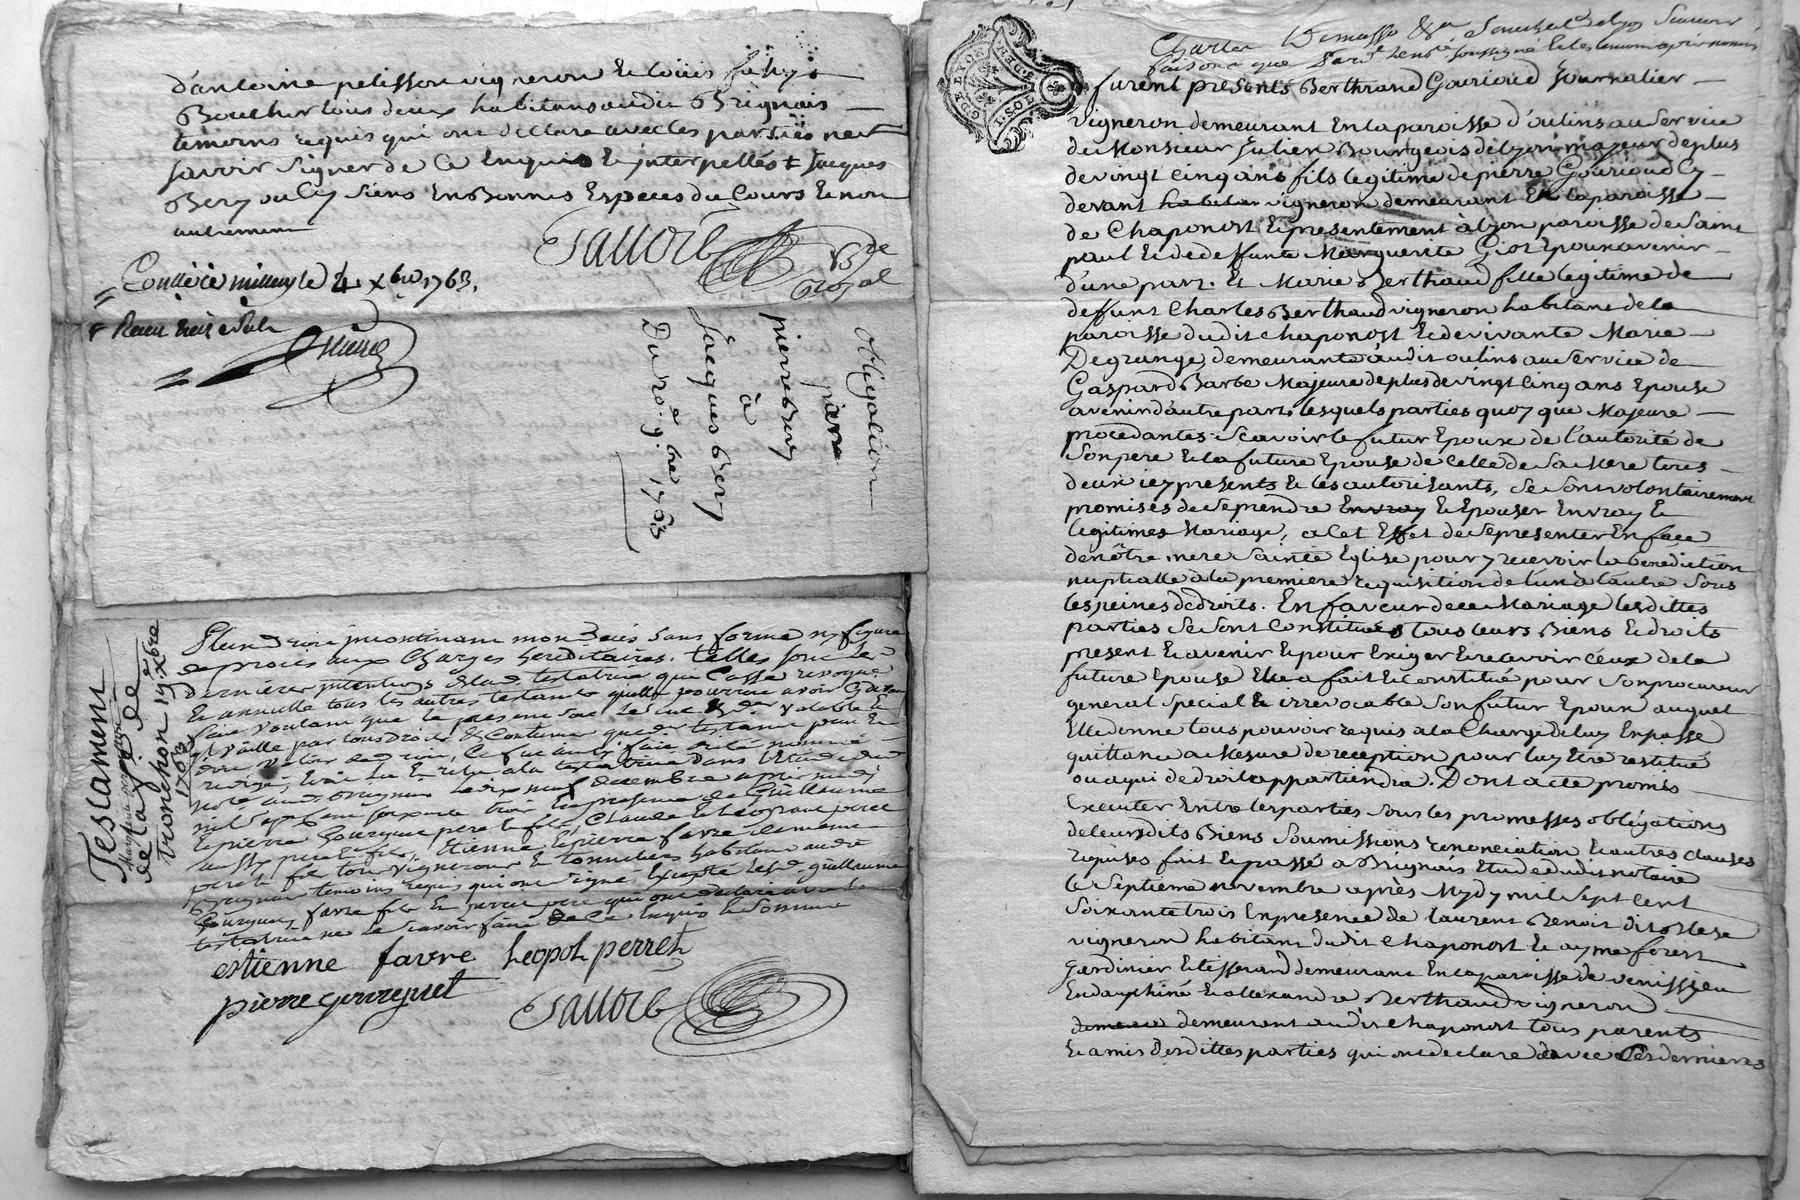 d'antoine pelisson vigneron Et Loüis
Boucher tous deux habitans audit Brignais
temoins requis qui ont declaré avec les parties ne
savoir signer de ce Enquis Et interpellés Jacques
Bery En Bonnes Especes du Cours Et non
autrement
Sautore
Royal
Conllé à millery le 4 xbre 1763.
Receu treize sols
Obligation
pierre Bery
à
Jacques Bery
Du 20e 9bre 1763
Testament
de la
tronchon 19 xbre
1763
sans forme ny figure
de procès aux Charges hereditaires. telles sont les
dernieres intentions de la testatrice qui Casse revoque
Et annulle tous les autres testaments qu'elle pourroit avoir cy devant
fait voulant que le present soit le seul valable Et
qu'il vaille par tous droits Et Coutumes que testament peut Et
doit valoir
redigé, Ecrit lu Et relu a la testatrice dans l'Etude dud
notre aud. Brignais le dix neuf decembre après midi
mil sept Cent soixante trois En presence de Guillaume
Et pierre Gourguet pere Et fils, Claude Et Leopol perret
aussy pere Et fils, Etienne Et pierre favre demême
pere Et fils tous vignerons Et tonneliers habitans audit
Brignais temoins requis qui ont signé Excepté lesd. guillaume
Gourguet, favre fils Et perret pere qui ont declaré avec la
testatrice ne le savoir faire de ce Enquis Et sommés
estienne favre Leopol perret
pierre gourguet
Sautore
G. DE LYON
2. S. DEN.
1. SOL
Charles Demasso
furent presents Berthrand Gourioud Journalier
Vigneron demeurant En la paroisse d'oulins au service
de Monsieur Julien Bourgeois de Lyon majeur de plus
de vingt cinq ans fils legitime de pierre Gourioud Cy
devant habitan vigneron demeurant En la paroisse
de Chaponost Et presentement à Lyon paroisse de Saint
paul Et de deffunte Marguerite Giot Epoux avenir
d'une part. Et Marie Berthaud fille legitime de
deffunt Charles Berthaud vigneron habitant de la
paroisse dudit Chaponost Et de vivante Marie
Degrange, demeurante audit oulins au service de
Gaspard Barbe Majeure de plus de vingt cinq ans Epouse
avenir d'autre part, lesquels parties quoy que Majeure
procedantes Scavoir le futur Epoux de l'autorité de
son pere Et la future Epouse de Celle de sa Mere tous
deux icy presents Et les autorisants, Se sont volontairement
promises de Se prendre Envray Et Epouser En vray Et
legitimes Mariage, a Cet Effet de Se presenter En face
de nôtre mere Sainte Eglise pour y recevoir la benediction
nuptialle a la premiere requisition de l'un à l'autre Sous
les peines de droits. En faveur de ce Mariage lesdittes
parties Se Sont Constitués tous leurs Biens Et droits
present Et avenir Et pour Exiger Et retevoir Ceux de la
future Epouse Elle a fait Et Constitué pour Son procureur
general Special Et irrevocable Son futur Epoux auquel
Elle donne tous pouvoir requis a la Charge de luy En passé
quittance a Mesure de reception pour luy Etre restitué
ou a qui de droit appartiendra. Dont acte promis
Executer Entre les parties Sous les promesses obligations
de leursdits Biens Soumissions renonciation Et autres clauses
requises fait Et passé a Brignais Etude dudit notaire
le Septieme novembre après Mydy mil Sept Cent
Soixante trois En presence de Laurent Benoit dit
vigneron habitant dudit Chaponost Et ayme forest
Jardinier Et tisserand demeurant En la paroisse de venissieu
En dauphiné Et allexandre Berthaud vigneron
demeurant audit Chaponost tous parents
Et amis desdittes parties qui ont declaré avec Ces dernieres